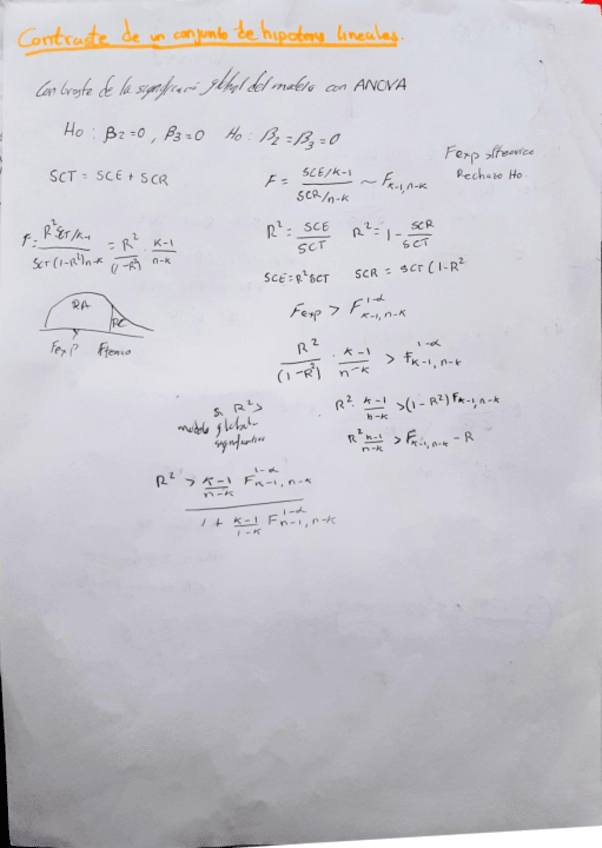 Contraste de un conjunto de hipotesis lineales.
Contraste de la significació global del modelo con ANOVA
Ho : β2=0 , β3=0 Ho : β2=β3=0
Fexp > Fteorico
Rechazo Ho.
SCT = SCE + SCR
F = SCE/k-1 / SCR/n-k ~ Fk-1, n-k
F = R² SCT/k-1 / SCT (1-R²) n-k = R² / (1-R²) · k-1 / n-k
R² = SCE / SCT R² = 1 - SCR / SCT
SCE = R² SCT SCR = SCT (1-R²
RA RC
Fexp Fteorico
Fexp > F 1-α k-1, n-k
R² / (1-R²) · k-1 / n-k > F 1-α k-1, n-k
Si R² >
modelo global
significativo
R² · k-1 / n-k > (1-R²) Fk-1, n-k
R² k-1 / n-k > Fk-1, n-k - R
R² > k-1 / n-k F 1-α k-1, n-k
1 + k-1 / 1-k F 1-α n-1, n-k